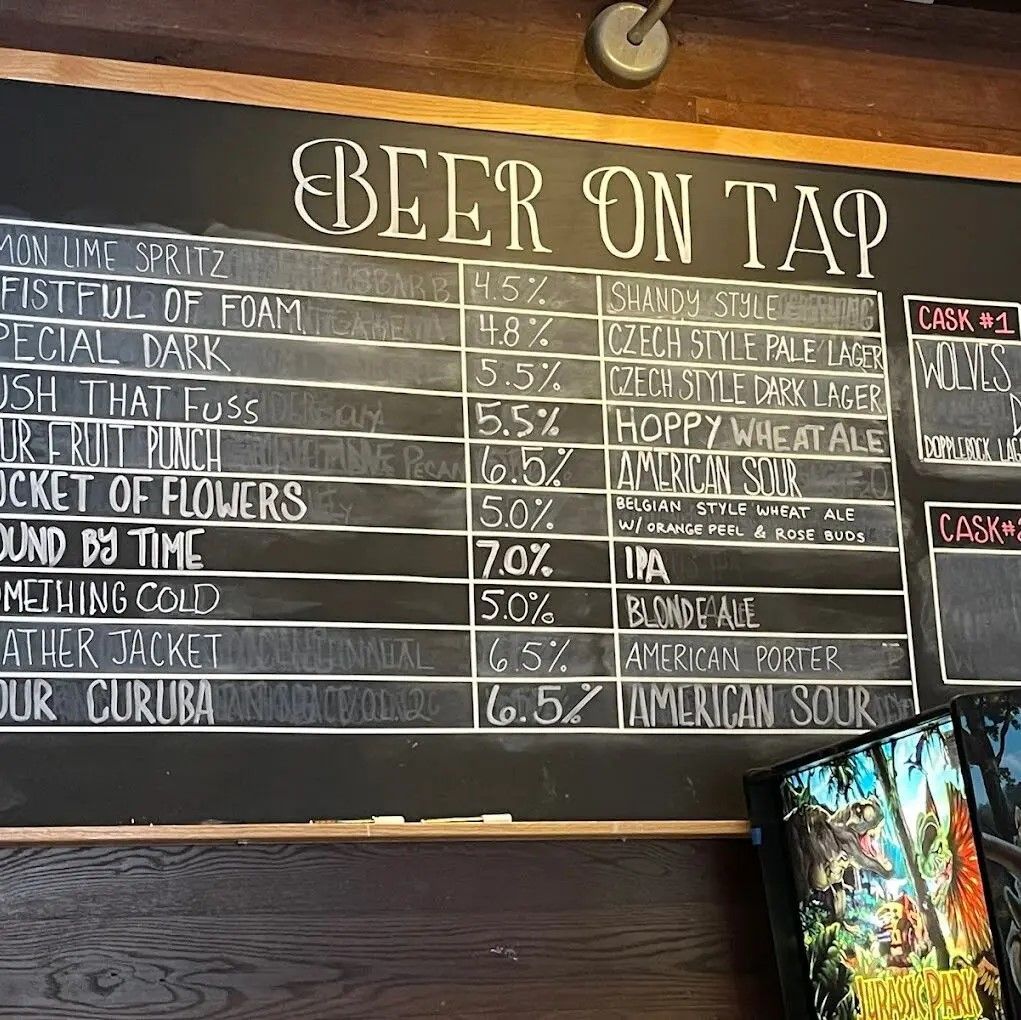 BEER ON TAP
MON LIME SPRITZ 4.5% SHANDY STYLE
FISTFUL OF FOAM 4.8% CZECH STYLE PALE LAGER
PECIAL DARK 5.5% CZECH STYLE DARK LAGER
USH THAT FUSS 5.5% HOPPY WHEAT ALE
UR FRUIT PUNCH 6.5% AMERICAN SOUR
OCKET OF FLOWERS 5.0% BELGIAN STYLE WHEAT ALE
W/ ORANGE PEEL & ROSE BUDS
OUND BY TIME 7.0% IPA
OMETHING COLD 5.0% BLONDE ALE
ATHER JACKET 6.5% AMERICAN PORTER
OUR CURUBA 6.5% AMERICAN SOUR
CASK #1
WOLVES
D
DOPPLEBOCK LAG
CASK #2
JURASSIC PARK